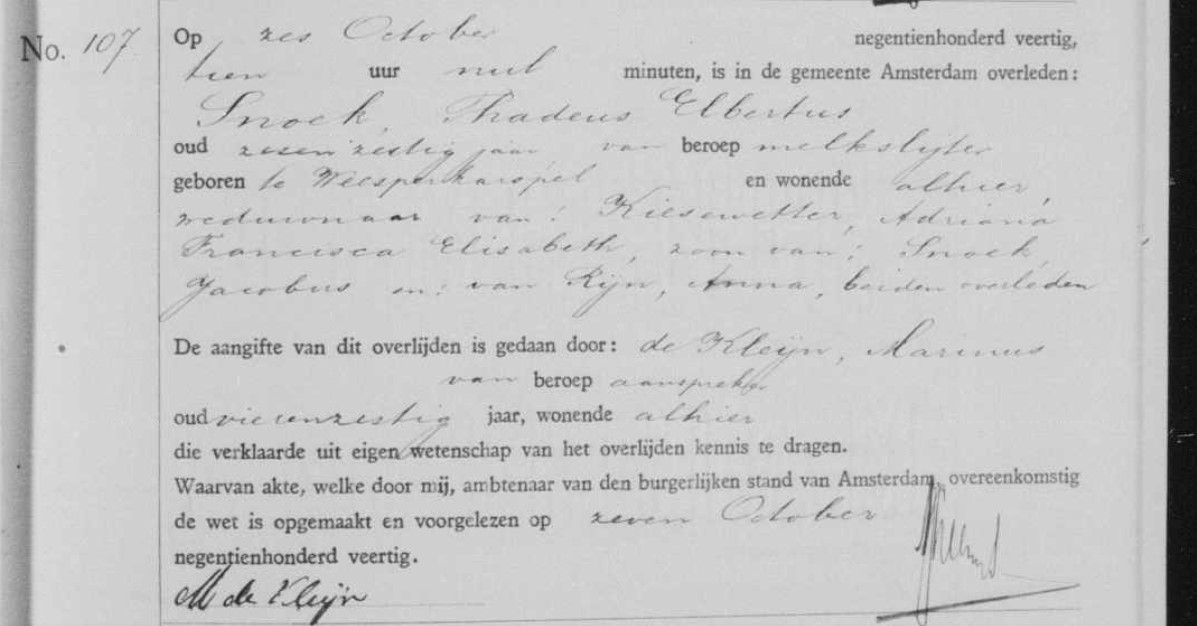 No. 107 Op zes October negentienhonderd veertig,
tien uur nul minuten, is in de gemeente Amsterdam overleden:
Snoek, Thadeus Elbertus
oud zesenzestig jaar van beroep melkslijter
geboren te Weesperkarspel en wonende alhier,
weduwnaar van: Kiesewetter, Adriana
Francisca Elisabeth, zoon van: Snoek,
Jacobus en: van Rijn, Anna, beiden overleden
De aangifte van dit overlijden is gedaan door: de Kleijn, Marinus
van beroep aanspreker
oud vierenzestig jaar, wonende alhier
die verklaarde uit eigen wetenschap van het overlijden kennis te dragen.
Waarvan akte, welke door mij, ambtenaar van den burgerlijken stand van Amsterdam, overeenkomstig
de wet is opgemaakt en voorgelezen op zeven October
negentienhonderd veertig.
M de Kleijn